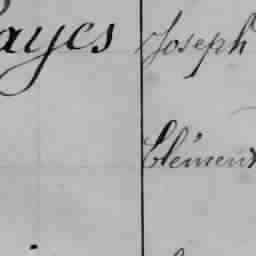 ayes Joseph
Clément